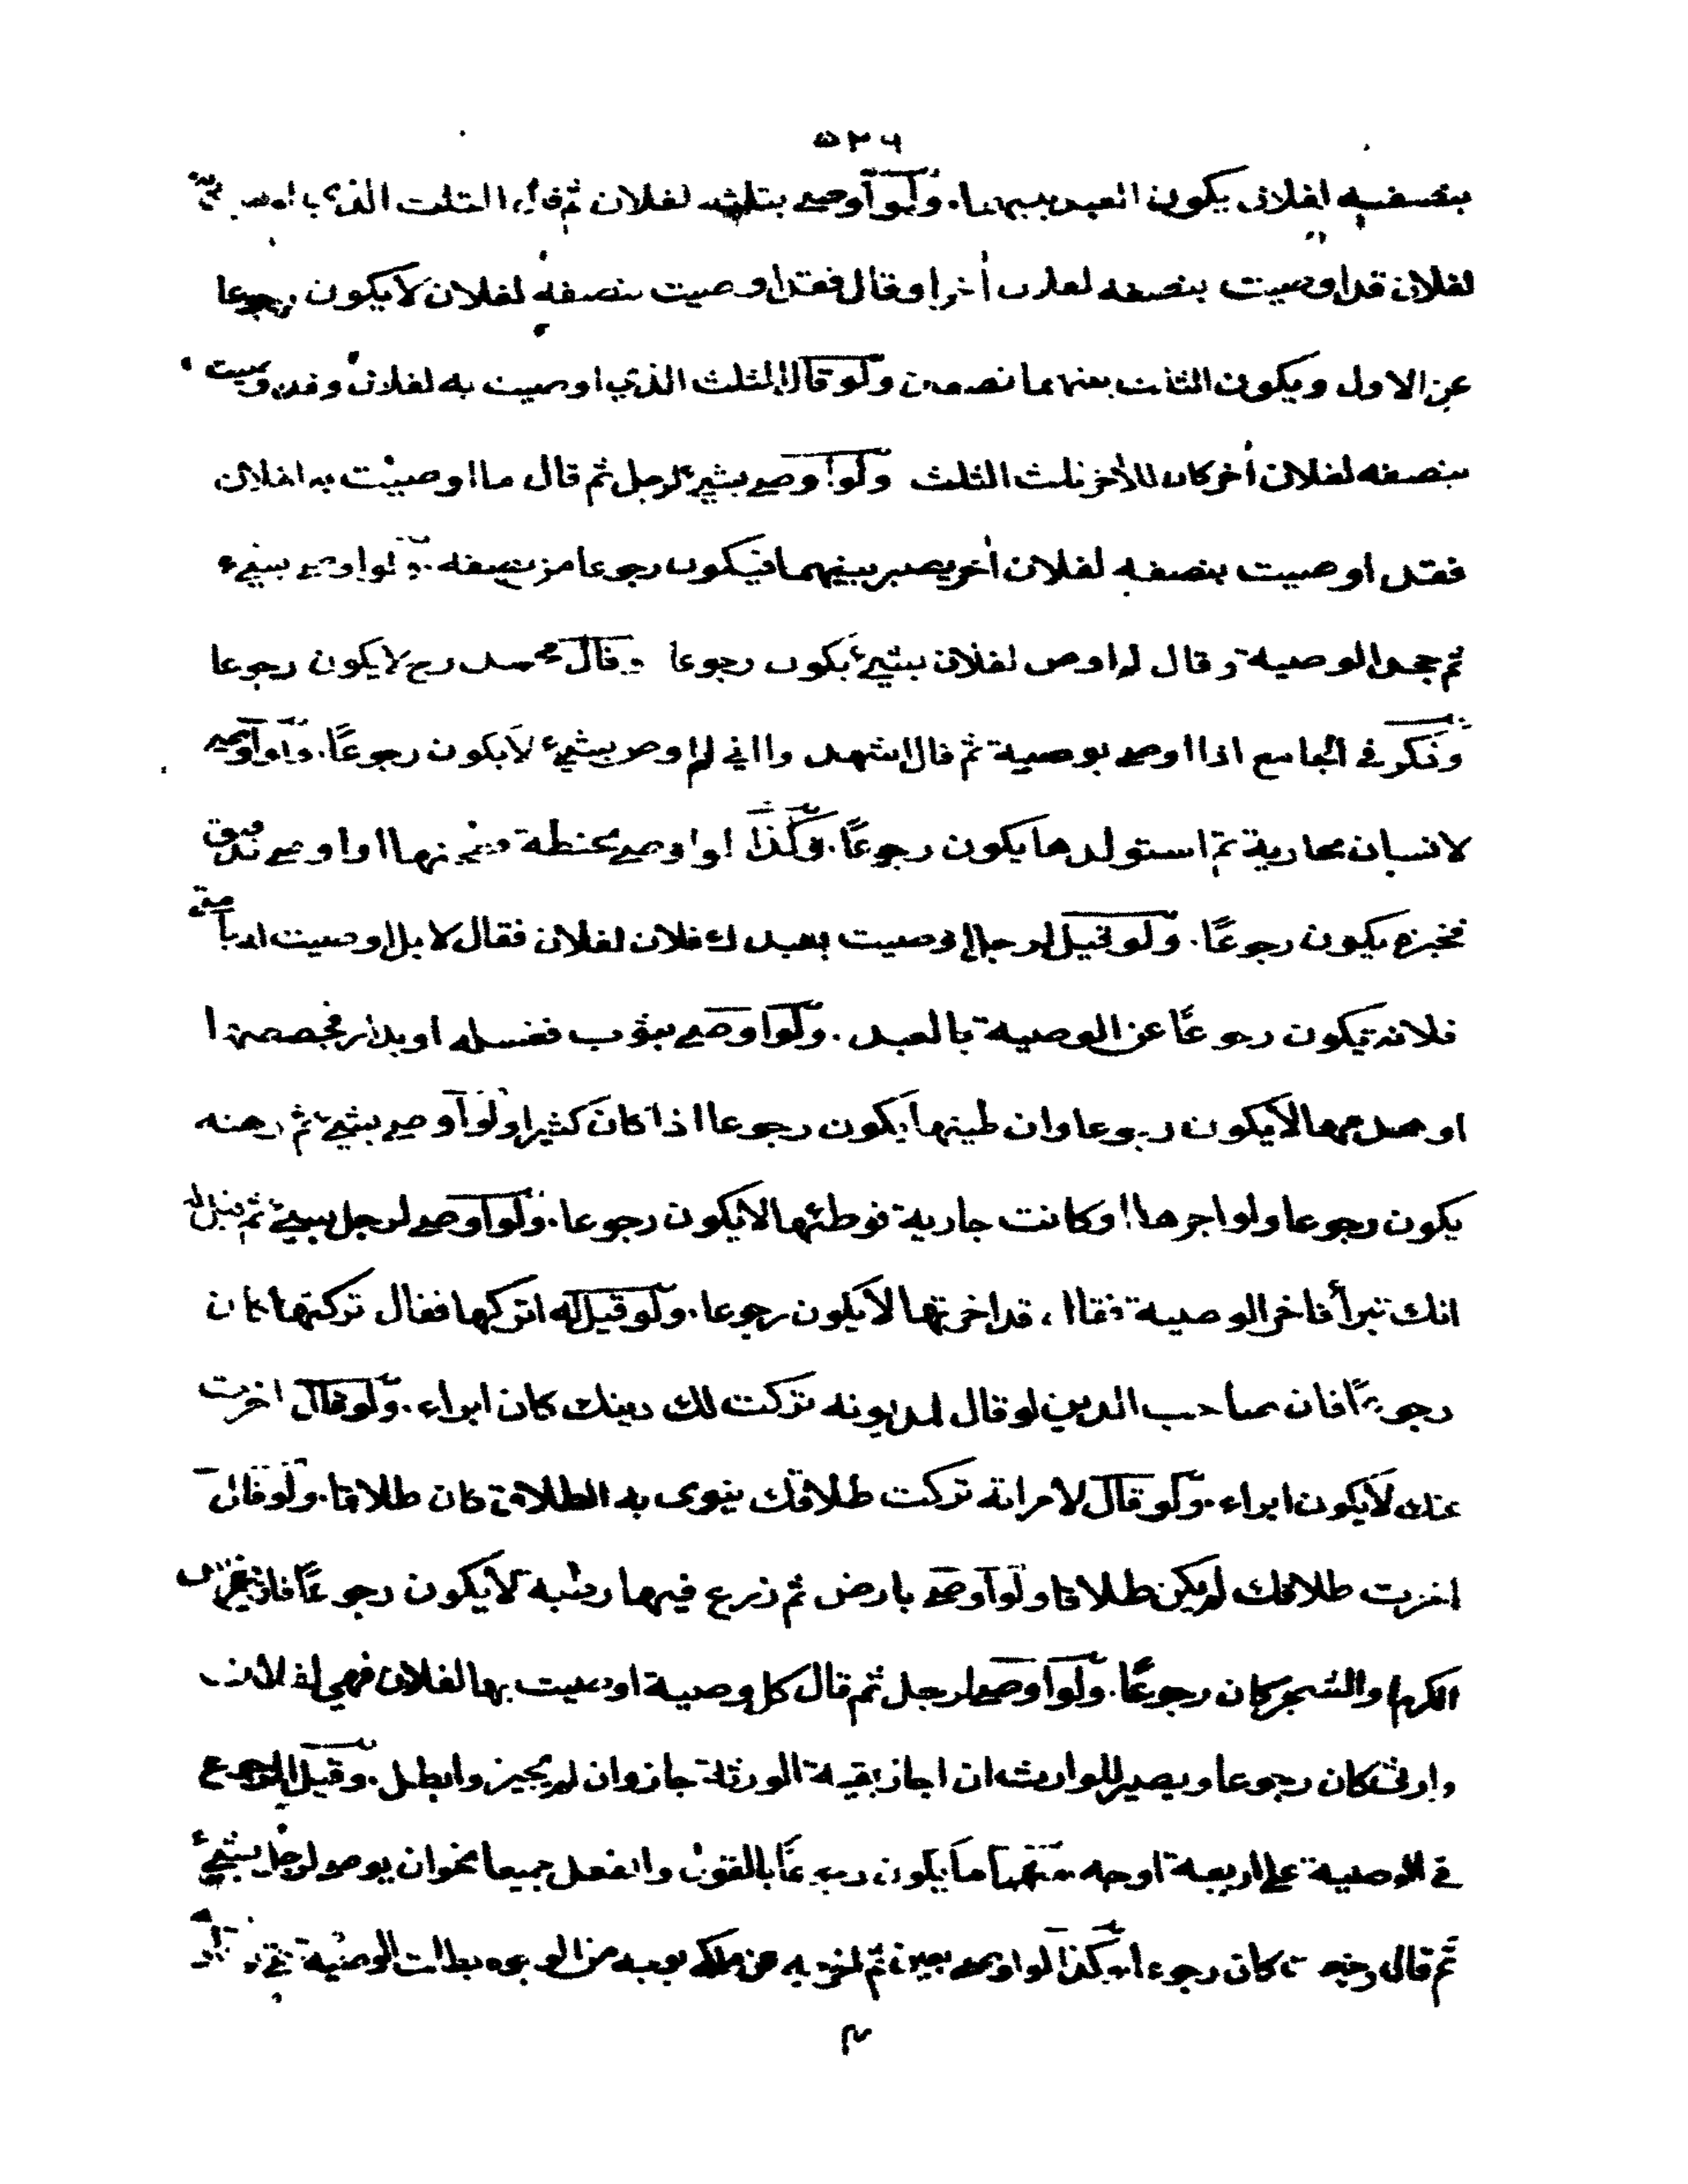 ٥٢٦
بنصفه لفلان يكون العبد بينهما. ولو اوصى بثلثه لفلان ثم قال الثلث الذي اوصيت
لفلان قد اوصيت بنصفه لفلان أخر او قال فقد اوصيت بنصفه لفلان لا يكون رجوعا
عن الاول ويكون الثلث بينهما نصفين ولو قال الثلث الذي اوصيت به لفلان وقد اوصيت
بنصفه لفلان أخر كان للأخر ثلث الثلث ولو اوصى بشيء لرجل ثم قال ما اوصيت به لفلان
فقد اوصيت بنصفه لفلان أخر يصير بينهما فيكون رجوعا من نصفه. ولو اوصى بشيء
ثم جحد الوصية وقال لم اوص لفلان بشيء يكون رجوعا وقال محمد رح لا يكون رجوعا
وذكر في الجامع اذا اوصى بوصية ثم قال اشهدوا اني لم اوص بشيء لا يكون رجوعًا. ولو اوصى
لانسان بجارية ثم استولدها يكون رجوعًا. وكذا لو اوصى بحنطة او اوصى بدقيق
فخبزه يكون رجوعًا. ولو قيل لرجل اوصيت بعبدك فلان لفلان فقال لا بل اوصيت
فلانة يكون رجوعًا عن الوصية بالعبد. ولو اوصى بثوب فغسله او بدار فجصصها
او هدمها لا يكون رجوعا وان طينها يكون رجوعا اذا كان كثيرا ولو اوصى بشيء ثم رهنه
يكون رجوعا ولو اجرها او كانت جارية فوطئها لا يكون رجوعا. ولو اوصى لرجل ثم قيل له
انك تبرأ فاخر الوصية فقال قد اخرتها لا يكون رجوعا. ولو قيل له اتركها فقال تركتها كان
رجوعًا فان صاحب الدين لو قال لمديونه تركت لك دينك كان ابراء. ولو قال اخرت
عنك لا يكون ابراء. ولو قال لامراته تركت طلاقك ينوى به الطلاق كان طلاقا. ولو قال
اخرت طلاقك لم يكن طلاقا ولو اوصى بارض ثم زرع فيها رطبة لا يكون رجوعًا فان غرس
الكرم والشجر كان رجوعًا. ولو اوصى لرجل ثم قال كل وصية اوصيت بها لفلان فهي لفلان
وارثي كان رجوعا ويصير للوارث ان اجاز بقية الورثة جاز وان لم يجيزوا بطل. وقيل الرجوع
في الوصية على اربعة اوجه منها ما يكون رجوعًا بالقول والفعل جميعا نحو ان يوصي لرجل بشيء
ثم قال رجعت كان رجوعا وكذا لو اوصى بعين ثم اخرجه عن ملكه بوجه من الوجوه بطلت الوصية